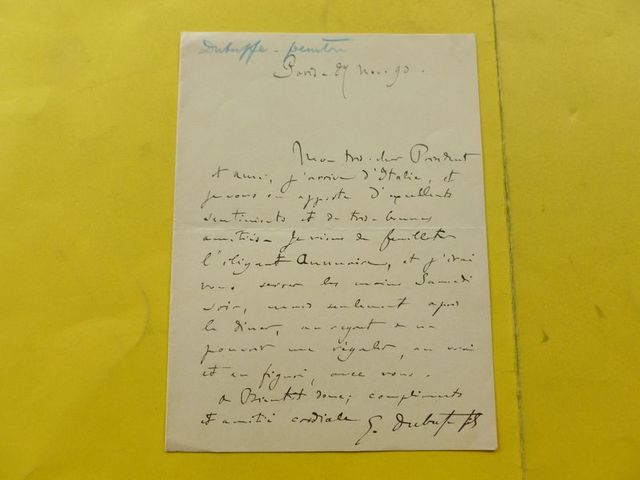 Dubuffe - peintre
Paris - 27 Nov. 90.
Mon très-cher Président
et ami, j'arrive d'Italie, et
je vous en apporte d'excellents
sentiments et de très-bonnes
amitiés - Je viens de feuilleter
l'élégant Annuaire, et j'irai
vous serrer les mains Samedi
soir, mais seulement après
le dîner, au regret de ne
pouvoir me régaler, au vrai
et au figuré, avec vous.
A Bientôt donc, compliments
et amitié cordiale G. Dubufe fils